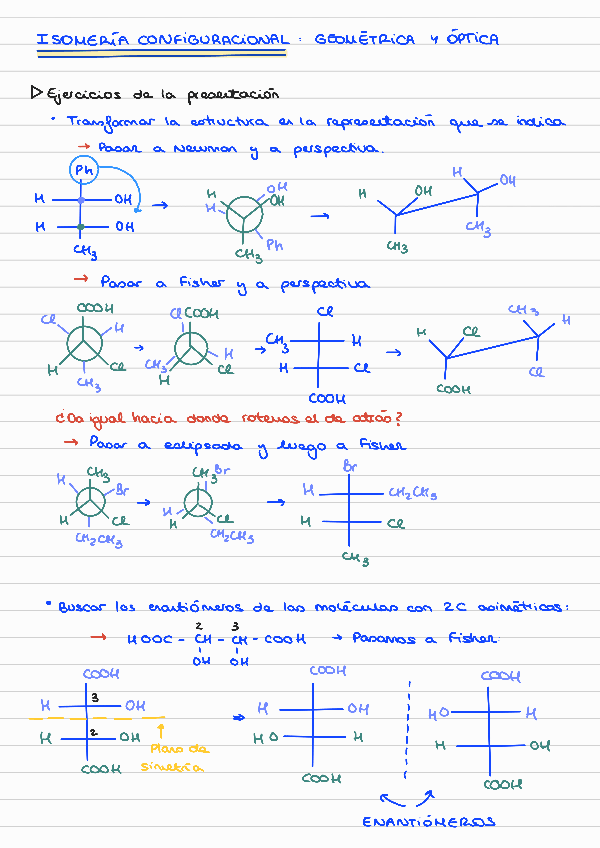 ISOMERÍA CONFIGURACIONAL: GEOMÉTRICA Y ÓPTICA
▷ Ejercicios de la presentación
• Transformar la estructura en la representación que se indica
→ Pasar a Newman y a perspectiva.
Ph
H OH
H OH
CH3
→
H
H
OH
OH
CH3
Ph
→
H
OH
CH3
H
OH
CH3
→ Pasar a Fisher y a perspectiva
COOH
Cl
H
H
Cl
CH3
→
Cl COOH
CH3
H
H
Cl
→
Cl
CH3 H
H Cl
COOH
→
H
Cl
COOH
CH3
H
Cl
¿Da igual hacia donde rotemos el de atrás?
→ Pasar a eclipsada y luego a Fisher
CH3
H
Br
H
Cl
CH2CH3
→
CH3 Br
H
H
Cl
CH2CH3
→
Br
H CH2CH3
H Cl
CH3
• Buscar los enantiómeros de las moléculas con 2C asimétricos:
2 3
→ HOOC - CH - CH - COOH → Pasamos a Fisher
OH OH
COOH
3
H OH
2
H OH
COOH
Plano de
simetría
⇒
COOH
H OH
HO H
COOH
COOH
HO H
H OH
COOH
ENANTIÓMEROS